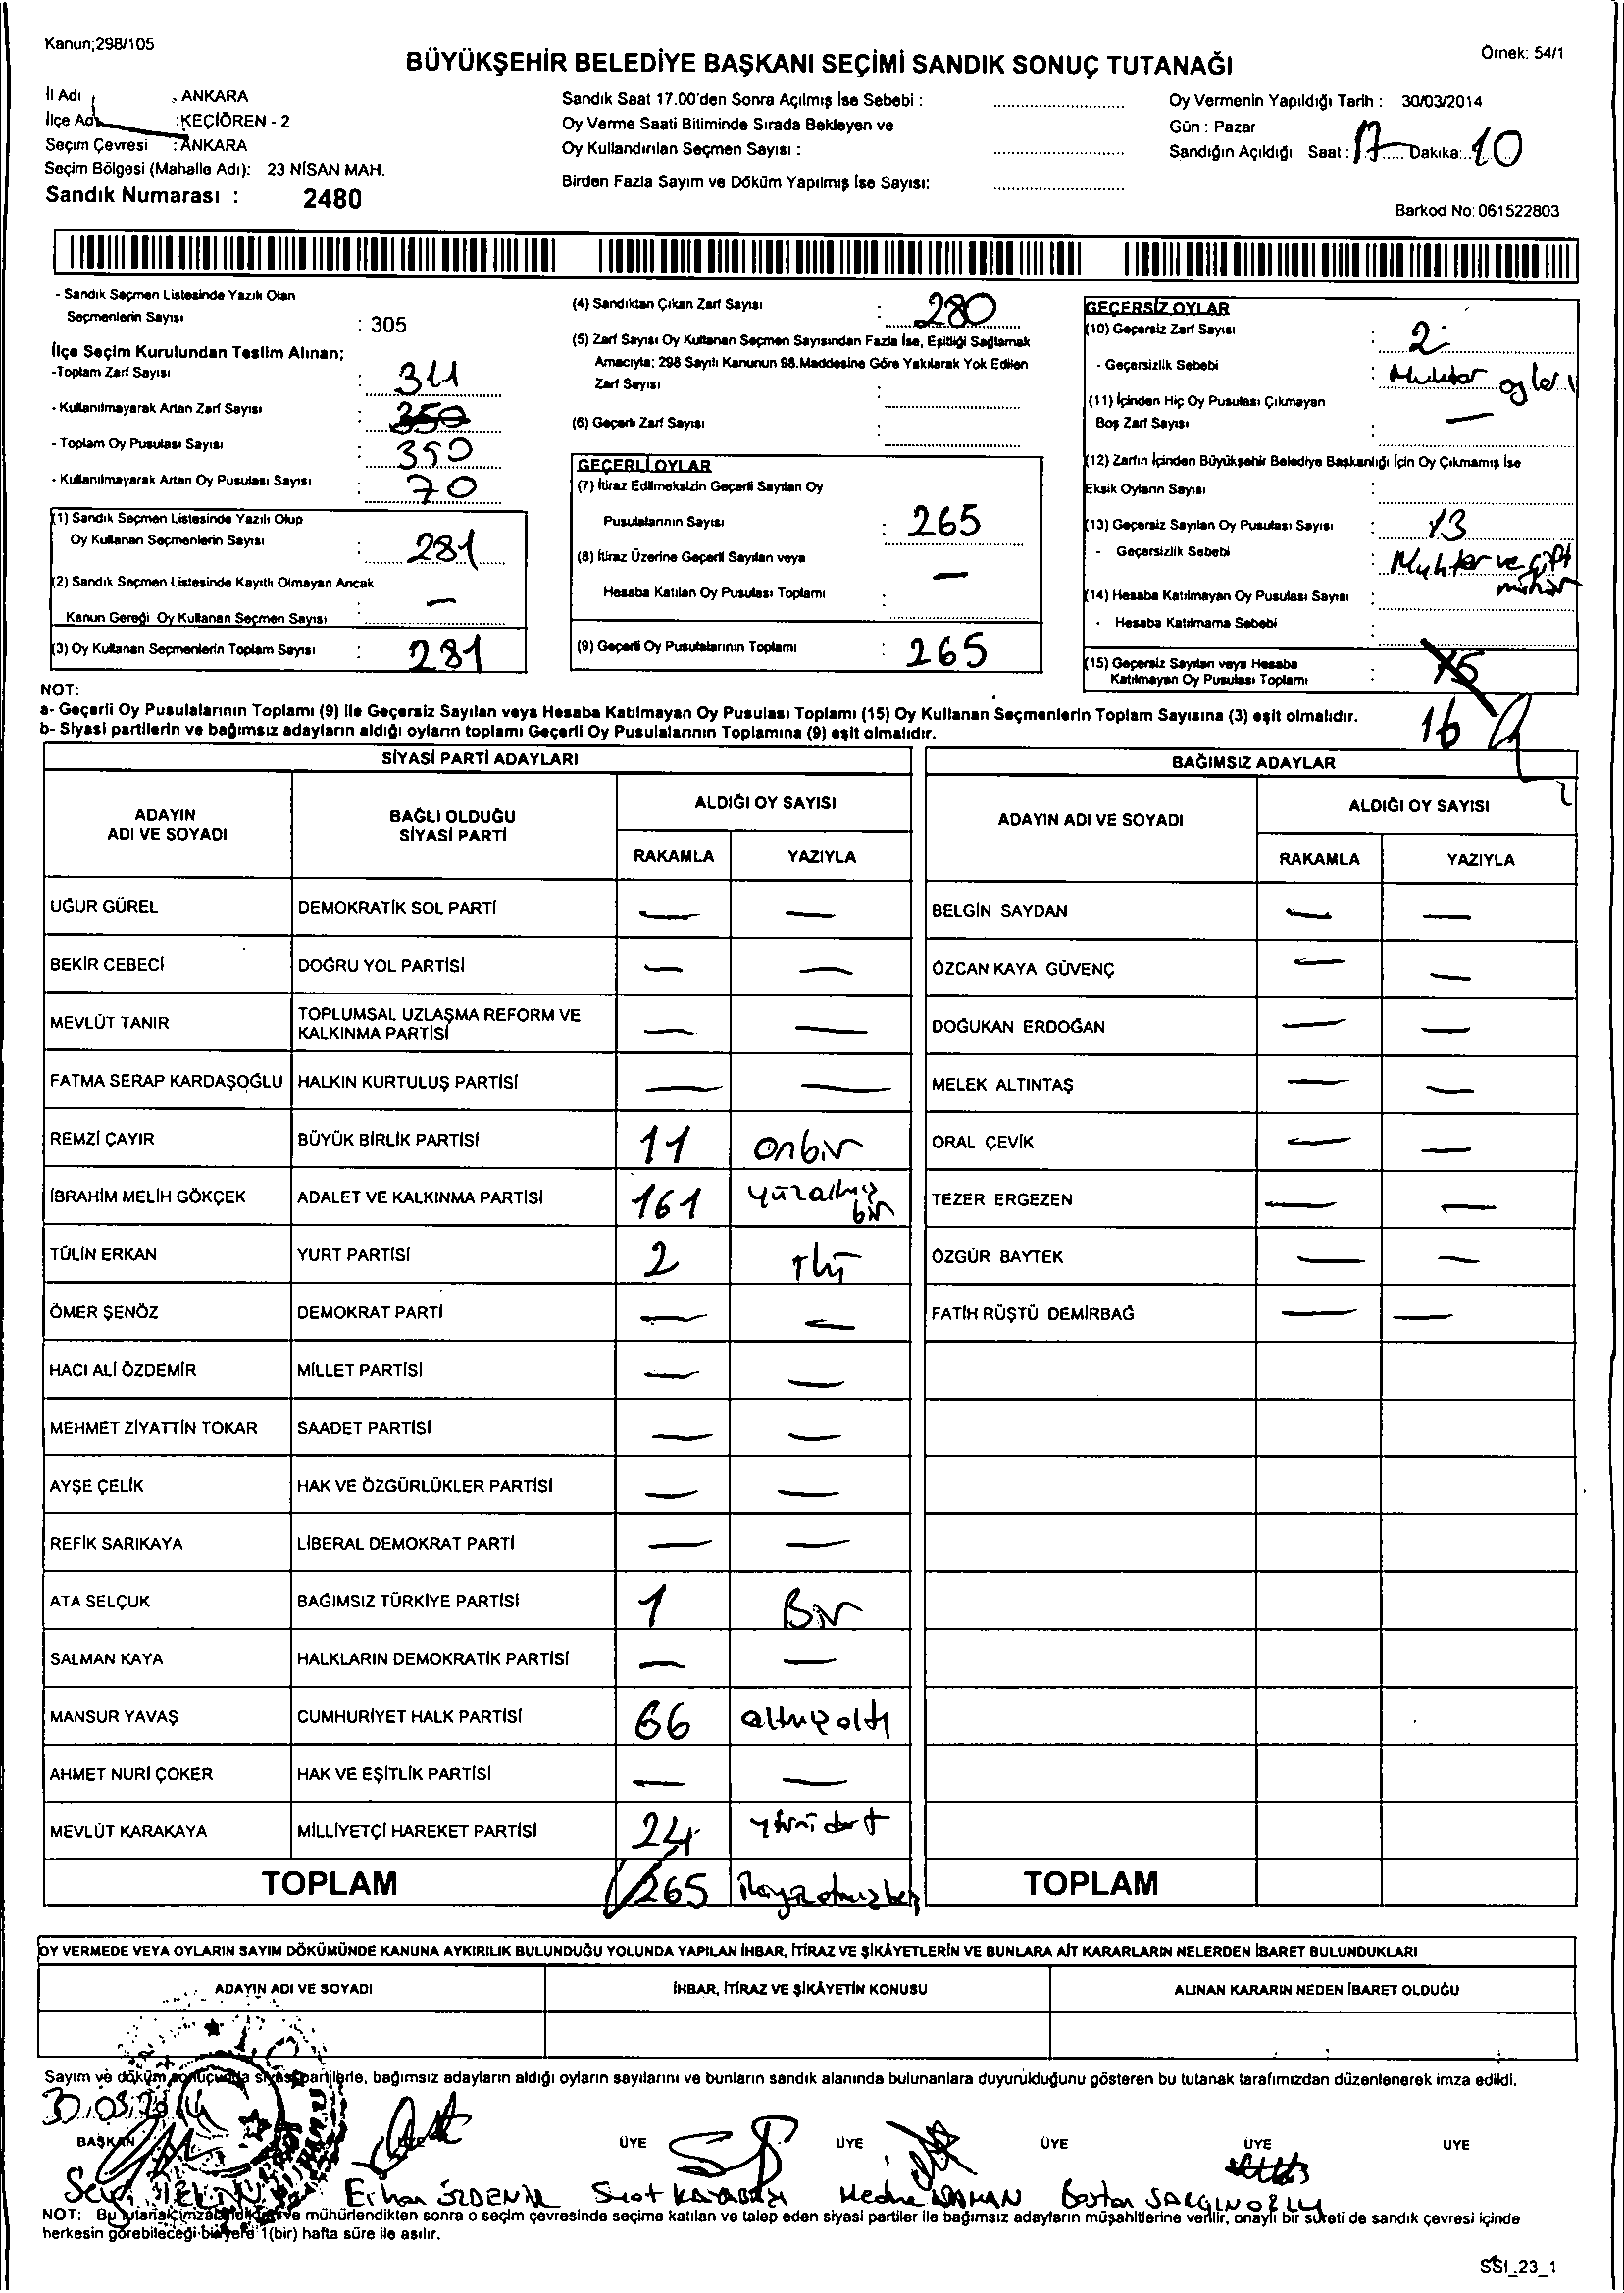 Kanun;298/105
Örnek: 54/1
BÜYÜKŞEHİR BELEDİYE BAŞKANI SEÇİMİ SANDIK SONUÇ TUTANAĞI
İl Adı : ANKARA
İlçe Adı :KEÇİÖREN - 2
Seçim Çevresi : ANKARA
Seçim Bölgesi (Mahalle Adı): 23 NİSAN MAH.
Sandık Numarası : 2480
Sandık Saat 17.00'den Sonra Açılmış İse Sebebi :
Oy Verme Saati Bitiminde Sırada Bekleyen ve
Oy Kullandırılan Seçmen Sayısı :
Birden Fazla Sayım ve Döküm Yapılmış İse Sayısı:
Oy Vermenin Yapıldığı Tarih : 30/03/2014
Gün : Pazar
Sandığın Açıldığı Saat : 17 Dakika: 10
Barkod No: 061522803
- Sandık Seçmen Listesinde Yazılı Olan
Seçmenlerin Sayısı : 305
İlçe Seçim Kurulundan Teslim Alınan;
-Toplam Zarf Sayısı : 311
- Kullanılmayarak Artan Zarf Sayısı : 350
- Toplam Oy Pusulası Sayısı : 350
- Kullanılmayarak Artan Oy Pusulası Sayısı : 70
(1) Sandık Seçmen Listesinde Yazılı Olup
Oy Kullanan Seçmenlerin Sayısı : 281
(2) Sandık Seçmen Listesinde Kayıtlı Olmayan Ancak
Kanun Gereği Oy Kullanan Seçmen Sayısı : —
(3) Oy Kullanan Seçmenlerin Toplam Sayısı : 281
(4) Sandıktan Çıkan Zarf Sayısı : 280
(5) Zarf Sayısı Oy Kullanan Seçmen Sayısından Fazla İse, Eşitliği Sağlamak
Amacıyla; 298 Sayılı Kanunun 98.Maddesine Göre Yakılarak Yok Edilen
Zarf Sayısı :
(6) Geçerli Zarf Sayısı :
GEÇERLİ OYLAR
(7) İtiraz Edilmeksizin Geçerli Sayılan Oy
Pusulalarının Sayısı : 265
(8) İtiraz Üzerine Geçerli Sayılan veya
Hesaba Katılan Oy Pusulası Toplamı : —
(9) Geçerli Oy Pusulalarının Toplamı : 265
GEÇERSİZ OYLAR
(10) Geçersiz Zarf Sayısı : 2
- Geçersizlik Sebebi : Muhtar oyları
(11) İçinden Hiç Oy Pusulası Çıkmayan
Boş Zarf Sayısı : —
(12) Zarfın İçinden Büyükşehir Belediye Başkanlığı İçin Oy Çıkmamış İse
Eksik Oyların Sayısı :
(13) Geçersiz Sayılan Oy Pusulası Sayısı : 13
- Geçersizlik Sebebi : Muhtar ve çift mühür
(14) Hesaba Katılmayan Oy Pusulası Sayısı :
- Hesaba Katılmama Sebebi :
(15) Geçersiz Sayılan veya Hesaba
Katılmayan Oy Pusulası Toplamı : 15
16
NOT:
a- Geçerli Oy Pusulalarının Toplamı (9) İle Geçersiz Sayılan veya Hesaba Katılmayan Oy Pusulası Toplamı (15) Oy Kullanan Seçmenlerin Toplam Sayısına (3) eşit olmalıdır.
b- Siyasi partilerin ve bağımsız adayların aldığı oyların toplamı Geçerli Oy Pusulalarının Toplamına (9) eşit olmalıdır.
SİYASİ PARTİ ADAYLARI
ADAYIN ADI VE SOYADI
BAĞLI OLDUĞU SİYASİ PARTİ
ALDIĞI OY SAYISI
RAKAMLA YAZIYLA
UĞUR GÜREL DEMOKRATİK SOL PARTİ — —
BEKİR CEBECİ DOĞRU YOL PARTİSİ — —
MEVLÜT TANIR TOPLUMSAL UZLAŞMA REFORM VE KALKINMA PARTİSİ — —
FATMA SERAP KARDAŞOĞLU HALKIN KURTULUŞ PARTİSİ — —
REMZİ ÇAYIR BÜYÜK BİRLİK PARTİSİ 11 onbir
İBRAHİM MELİH GÖKÇEK ADALET VE KALKINMA PARTİSİ 161 yüzaltmış bir
TÜLİN ERKAN YURT PARTİSİ 2
ÖMER ŞENÖZ DEMOKRAT PARTİ — —
HACI ALİ ÖZDEMİR MİLLET PARTİSİ — —
MEHMET ZİYATTİN TOKAR SAADET PARTİSİ — —
AYŞE ÇELİK HAK VE ÖZGÜRLÜKLER PARTİSİ — —
REFİK SARIKAYA LİBERAL DEMOKRAT PARTİ — —
ATA SELÇUK BAĞIMSIZ TÜRKİYE PARTİSİ 1 Bir
SALMAN KAYA HALKLARIN DEMOKRATİK PARTİSİ — —
MANSUR YAVAŞ CUMHURİYET HALK PARTİSİ 66 altmış altı
AHMET NURİ ÇOKER HAK VE EŞİTLİK PARTİSİ — —
MEVLÜT KARAKAYA MİLLİYETÇİ HAREKET PARTİSİ 24 yirmi dört
TOPLAM 265
BAĞIMSIZ ADAYLAR
ADAYIN ADI VE SOYADI
ALDIĞI OY SAYISI
RAKAMLA YAZIYLA
BELGİN SAYDAN — —
ÖZCAN KAYA GÜVENÇ — —
DOĞUKAN ERDOĞAN — —
MELEK ALTINTAŞ — —
ORAL ÇEVİK — —
TEZER ERGEZEN — —
ÖZGÜR BAYTEK — —
FATİH RÜŞTÜ DEMİRBAĞ — —
TOPLAM
OY VERMEDE VEYA OYLARIN SAYIM DÖKÜMÜNDE KANUNA AYKIRILIK BULUNDUĞU YOLUNDA YAPILAN İHBAR, İTİRAZ VE ŞİKÂYETLERİN VE BUNLARA AİT KARARLARIN NELERDEN İBARET BULUNDUKLARI
ADAYIN ADI VE SOYADI
İHBAR, İTİRAZ VE ŞİKÂYETİN KONUSU
ALINAN KARARIN NEDEN İBARET OLDUĞU
Sayım ve döküm sonucunda siyasi partilerle, bağımsız adayların aldığı oyların sayılarını ve bunların sandık alanında bulunanlara duyurulduğunu gösteren bu tutanak tarafımızdan düzenlenerek imza edildi.
30.03.2014
BAŞKAN ÜYE ÜYE ÜYE ÜYE ÜYE ÜYE
Erhan Suat Bostan
NOT: Bu tutanak imzalandıktan ve mühürlendikten sonra o seçim çevresinde seçime katılan ve talep eden siyasi partiler ile bağımsız adayların müşahitlerine verilir, onaylı bir sureti de sandık çevresi içinde
herkesin görebileceği bir yere 1(bir) hafta süre ile asılır.
SSI_23_1